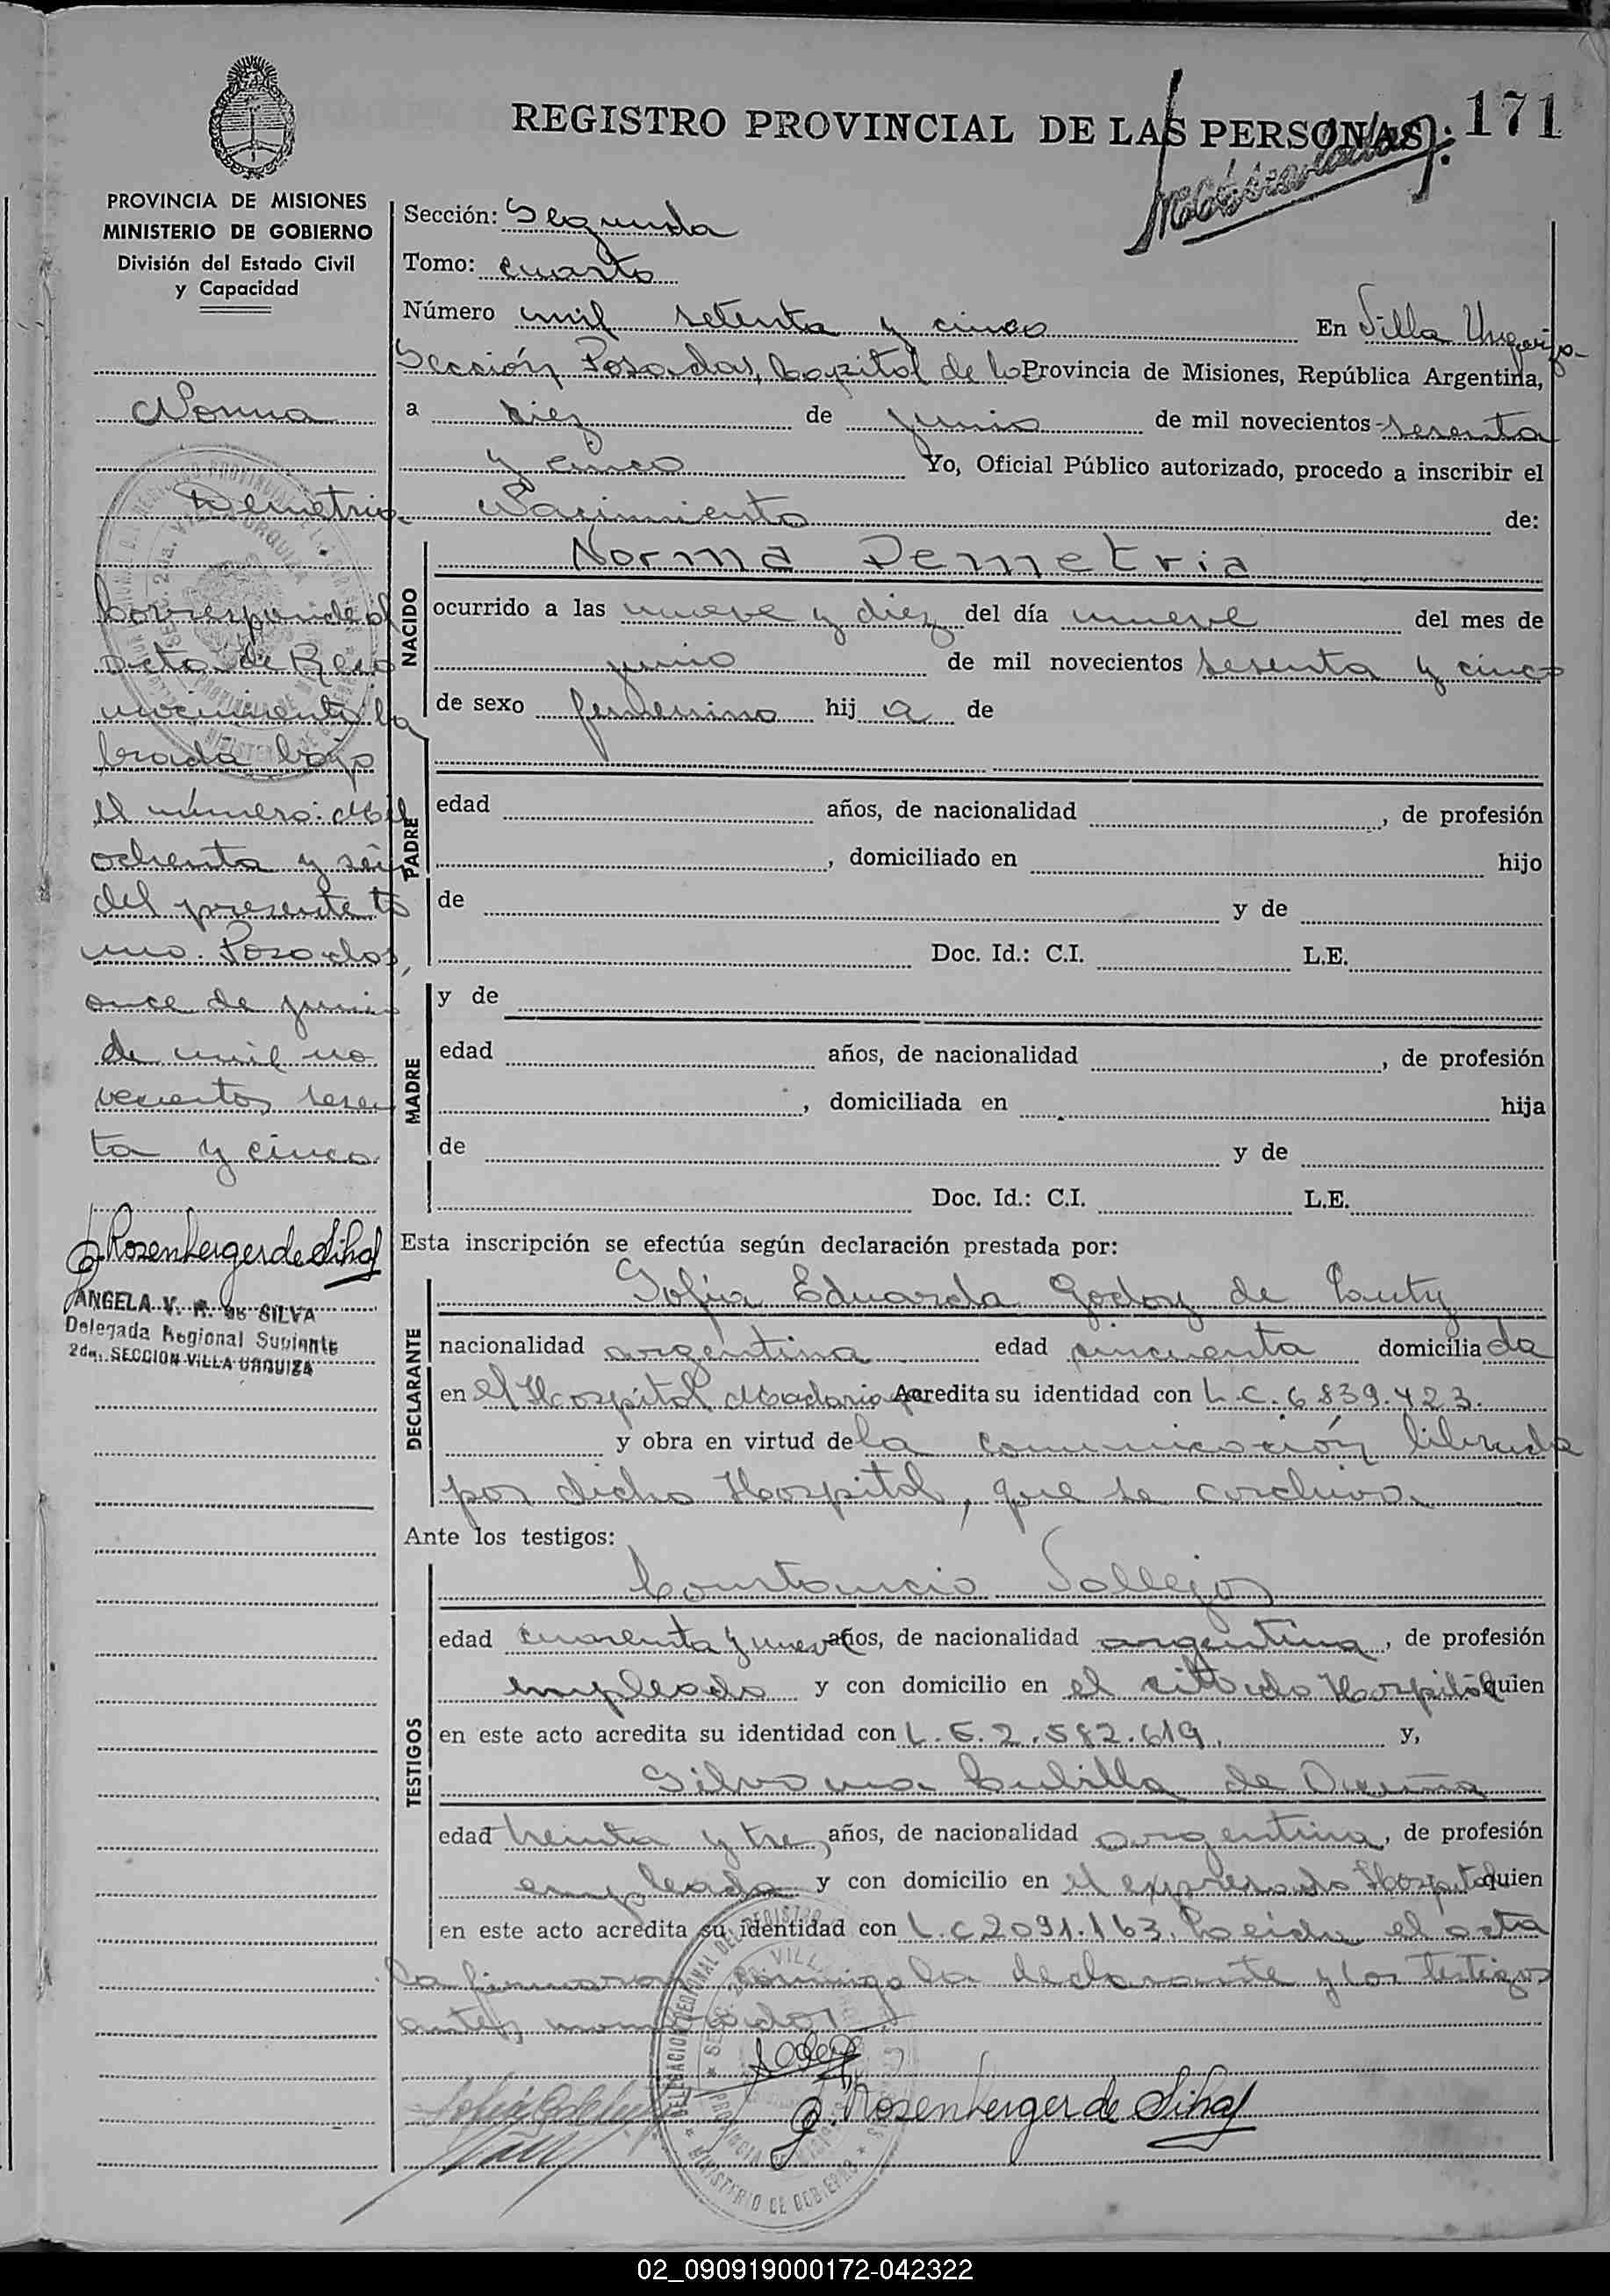 REGISTRO PROVINCIAL DE LAS PERSONAS
171
PROVINCIA DE MISIONES
MINISTERIO DE GOBIERNO
División del Estado Civil
y Capacidad
Sección: Segunda
Tomo: cuarto
Número mil setenta y cinco En Villa Urquiza
Sección Posadas, Capital de la Provincia de Misiones, República Argentina,
a diez de junio de mil novecientos sesenta
y cinco Yo, Oficial Público autorizado, procedo a inscribir el
Nacimiento de:
NACIDO
Norma Demetria
ocurrido a las nueve y diez del día nueve del mes de
junio de mil novecientos sesenta y cinco
de sexo femenino hij a de
PADRE
edad años, de nacionalidad , de profesión
, domiciliado en hijo
de y de
Doc. Id.: C.I. L.E.
MADRE
y de
edad años, de nacionalidad , de profesión
, domiciliada en hija
de y de
Doc. Id.: C.I. L.E.
Esta inscripción se efectúa según declaración prestada por:
DECLARANTE
Sofia Eduarda Godoy de
nacionalidad argentina edad cincuenta domiciliada
en el Hospital Madariaga Acredita su identidad con L.C. 6839.423.
y obra en virtud de la comunicación librada
por dicho Hospital, que se archiva.
Ante los testigos:
TESTIGOS
Constancio Vallejos
edad cuarenta y nueve años, de nacionalidad argentina, de profesión
empleado y con domicilio en el citado Hospital quien
en este acto acredita su identidad con L.E. 2.582.619. y,
Silvana Cubilla de Acuña
edad treinta y tres años, de nacionalidad argentina, de profesión
empleada y con domicilio en el expresado Hospital quien
en este acto acredita su identidad con L.C 2091.163. Leida el acta
la firmaron conmigo la declarante y los testigos
antes nombrados
Rosenberger de Silva
Norma
Demetria.
Corresponde al
acta de Reco
nocimiento la
brada bajo
el número: Mil
ochenta y seis
del presente to
mo. Posadas,
once de junio
de mil no
vecientos sesen
ta y cinco.
Rosenberger de Silva
ANGELA V. R. de SILVA
Delegada Regional Suplente
2da. SECCION VILLA URQUIZA
02_090919000172-042322